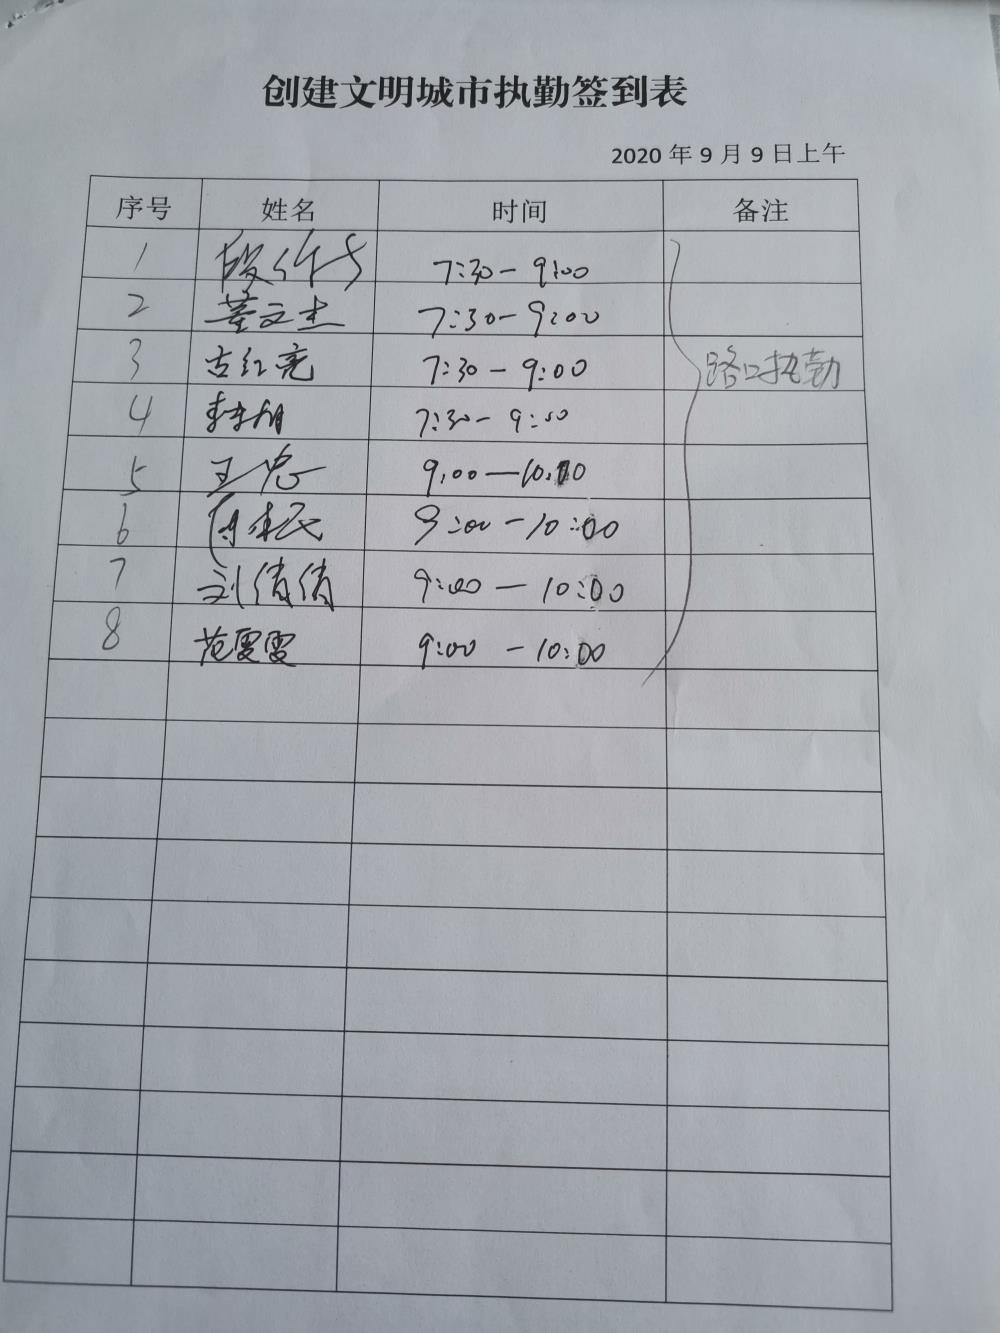 创建文明城市执勤签到表
2020 年 9 月 9 日上午
序号 姓名 时间 备注
1 7:30-9:00
2 董文杰 7:30-9:00
3 古红亮 7:30-9:00 路口执勤
4 7:30-9:00
5 王忠 9:00-10:00
6 9:00-10:00
7 刘倩倩 9:00-10:00
8 范雯雯 9:00-10:00